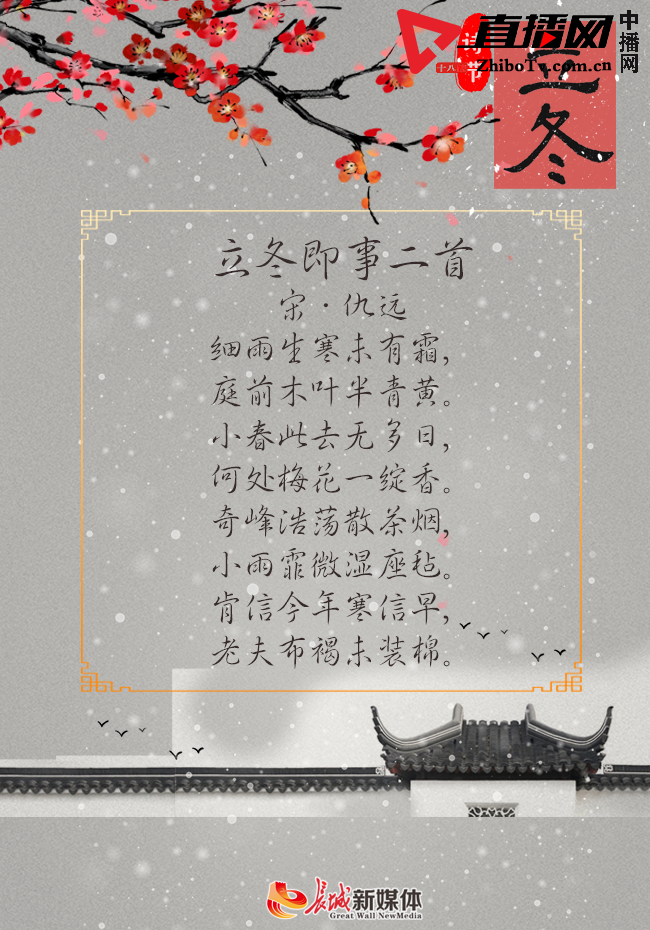 直播网
ZhiboTv.com.cn
中播网
诗
节
十八
立冬
立冬即事二首
宋·仇远
细雨生寒未有霜，
庭前木叶半青黄。
小春此去无多日，
何处梅花一绽香。
奇峰浩荡散茶烟，
小雨霏微湿座毡。
肯信今年寒信早，
老夫布褐未装棉。
长城新媒体
Great Wall NewMedia